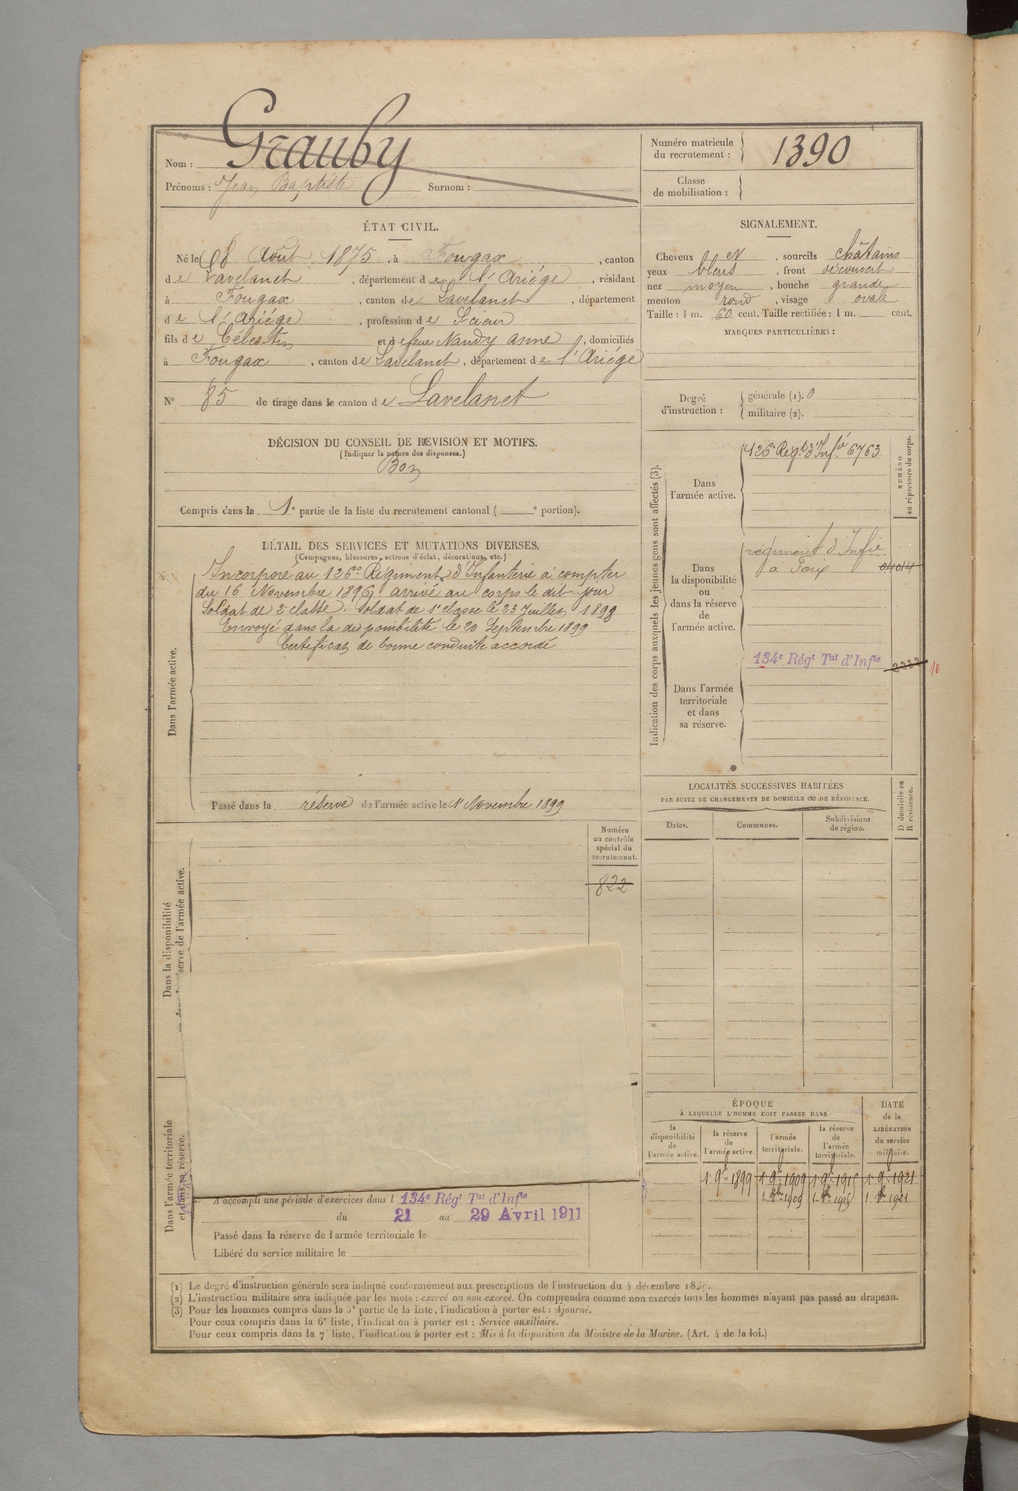 Nom : Grauby
Prénoms : Jean Baptiste Surnom :
Numéro matricule du recrutement : 1390
Classe de mobilisation :
ÉTAT CIVIL.
Né le 8 Août 1875, à Fougax, canton
de Lavelanet, département de l'Ariége, résidant
à Fougax, canton de Lavelanet, département
de l'Ariége, profession de Scieur
fils de Célestin et de feue Nandy Anne, domiciliés
à Fougax, canton de Lavelanet, département de l'Ariége
N° 85 de tirage dans le canton de Lavelanet
SIGNALEMENT.
Cheveux N, sourcils châtains
yeux bleus, front découvert
nez moyen, bouche grande
menton rond, visage ovale
Taille : 1 m. 60 cent. Taille rectifiée : 1 m. cent.
MARQUES PARTICULIÈRES :
DÉCISION DU CONSEIL DE REVISION ET MOTIFS.
(Indiquer la nature des dispenses.)
Bon
Compris dans la 1e partie de la liste du recrutement cantonal ( e portion).
Degré d'instruction :
générale (1). 0
militaire (2).
DÉTAIL DES SERVICES ET MUTATIONS DIVERSES.
(Campagnes, blessures, actions d'éclat, décorations, etc.)
Dans l'armée active.
Incorporé au 126e Régiment d'Infanterie à compter
du 16 Novembre 1896, arrivé au corps le dit jour
Soldat de 2e classe. Soldat de 1e classe le 23 Juillet 1898
Envoyé dans la disponibilité le 20 Septembre 1899
Certificat de bonne conduite accordé
Passé dans la réserve de l'armée active le 1r Novembre 1899
Indication des corps auxquels les jeunes gens sont affectés (3).
NUMÉRO au répertoire du corps.
Dans l'armée active.
126e Régt d'Infie 6763
Dans la disponibilité ou dans la réserve de l'armée active.
régiment d'Infie
à Foix
Dans l'armée territoriale et dans sa réserve.
134e Régt Tal d'Infie
LOCALITÉS SUCCESSIVES HABITÉES
PAR SUITE DE CHANGEMENTS DE DOMICILE OU DE RÉSIDENCE.
Dates. Communes. Subdivisions de région. D domicile ou R résidence.
Numéro au contrôle spécial du recrutement.
822
Dans la disponibilité
réserve de l'armée active.
Dans l'armée territoriale et dans sa réserve.
A accompli une période d'exercices dans l 134e Régt Tal d'Infie
du 21 au 29 Avril 1911
Passé dans la réserve de l'armée territoriale le
Libéré du service militaire le
ÉPOQUE
À LAQUELLE L'HOMME DOIT PASSER DANS
DATE de la LIBÉRATION du service militaire.
la disponibilité de l'armée active. la réserve de l'armée active. l'armée territoriale. la réserve de l'armée territoriale.
1r 9bre 1899 1r 9bre 1909 1r 9bre 1915 1r 9bre 1921
(1) Le degré d'instruction générale sera indiqué conformément aux prescriptions de l'instruction du 4 décembre 1889.
(2) L'instruction militaire sera indiquée par les mots : exercé ou non exercé. On comprendra comme non exercés tous les hommes n'ayant pas passé au drapeau.
(3) Pour les hommes compris dans la 5e partie de la liste, l'indication à porter est : Ajourné.
Pour ceux compris dans la 6e liste, l'indication à porter est : Service auxiliaire.
Pour ceux compris dans la 7e liste, l'indication à porter est : Mis à la disposition du Ministre de la Marine. (Art. 4 de la loi.)